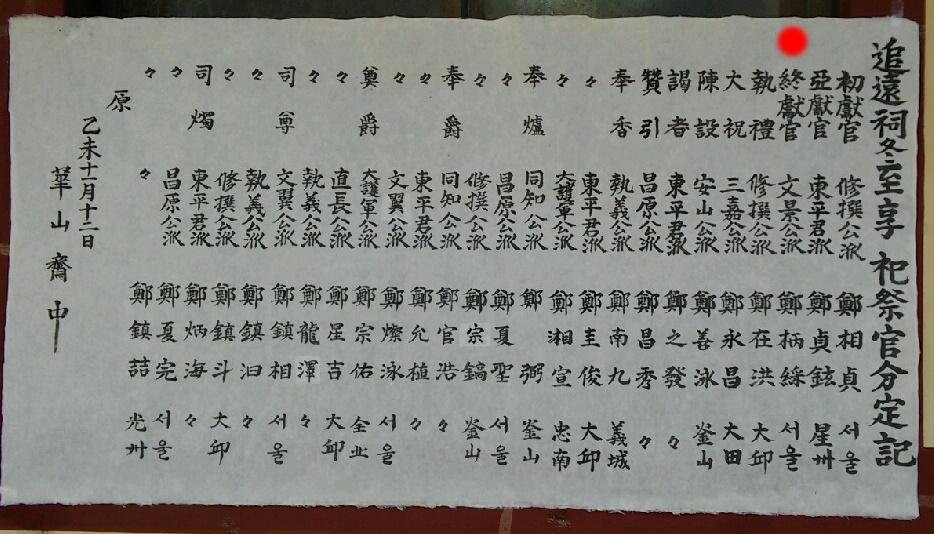 追遠祠冬至享祀祭官分定記
初獻官 修撰公派 鄭相貞 서울
亞獻官 東平君派 鄭貞鉉 星州
終獻官 文景公派 鄭柄綵 서울
執禮 修撰公派 鄭在洪 大邱
大祝 三嘉公派 鄭永昌 大田
陳設 安山公派 鄭善泳 釜山
謁者 東平君派 鄭之發 々
贊引 昌原公派 鄭昌秀 々
奉香 執義公派 鄭南九 義城
々 東平君派 鄭圭俊 大邱
々 大護軍公派 鄭湘宣 忠南
奉爐 同知公派 鄭弼 釜山
々 昌原公派 鄭夏聖 서울
々 修撰公派 鄭宗鎬 釜山
奉爵 同知公派 鄭官浩 々
々 東平君派 鄭允植 々
々 文翼公派 鄭燦泳 서울
奠爵 大護軍公派 鄭宗佑 全北
々 直長公派 鄭星吉 大邱
々 執義公派 鄭龍澤 々
司尊 文翼公派 鄭鎭相 서울
々 執義公派 鄭鎭汩 々
々 修撰公派 鄭鎭斗 大邱
司燭 東平君派 鄭炳海 々
々 昌原公派 鄭夏完 서울
々 々 鄭鎭喆 光州
原
乙未十一月十二日
華山齋中